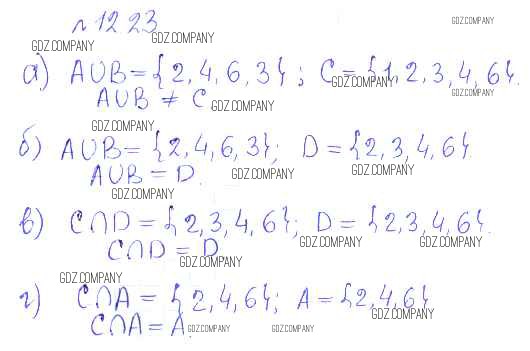 № 12.23
GDZ.COMPANY GDZ.COMPANY GDZ.COMPANY
а) A∪B = {2, 4, 6, 3}; C = {1, 2, 3, 4, 6}.
GDZ.COMPANY GDZ.COMPANY
A∪B ≠ C GDZ.COMPANY
GDZ.COMPANY
б) A∪B = {2, 4, 6, 3}; D = {2, 3, 4, 6}
A∪B = D. GDZ.COMPANY GDZ.COMPANY
GDZ.COMPANY
в) C∩D = {2, 3, 4, 6}; D = {2, 3, 4, 6}.
GDZ.COMPANY GDZ.COMPANY
C∩D = D
GDZ.COMPANY
GDZ.COMPANY
г) C∩A = {2, 4, 6}; A = {2, 4, 6}
GDZ.COMPANY
C∩A = A. GDZ.COMPANY GDZ.COMPANY